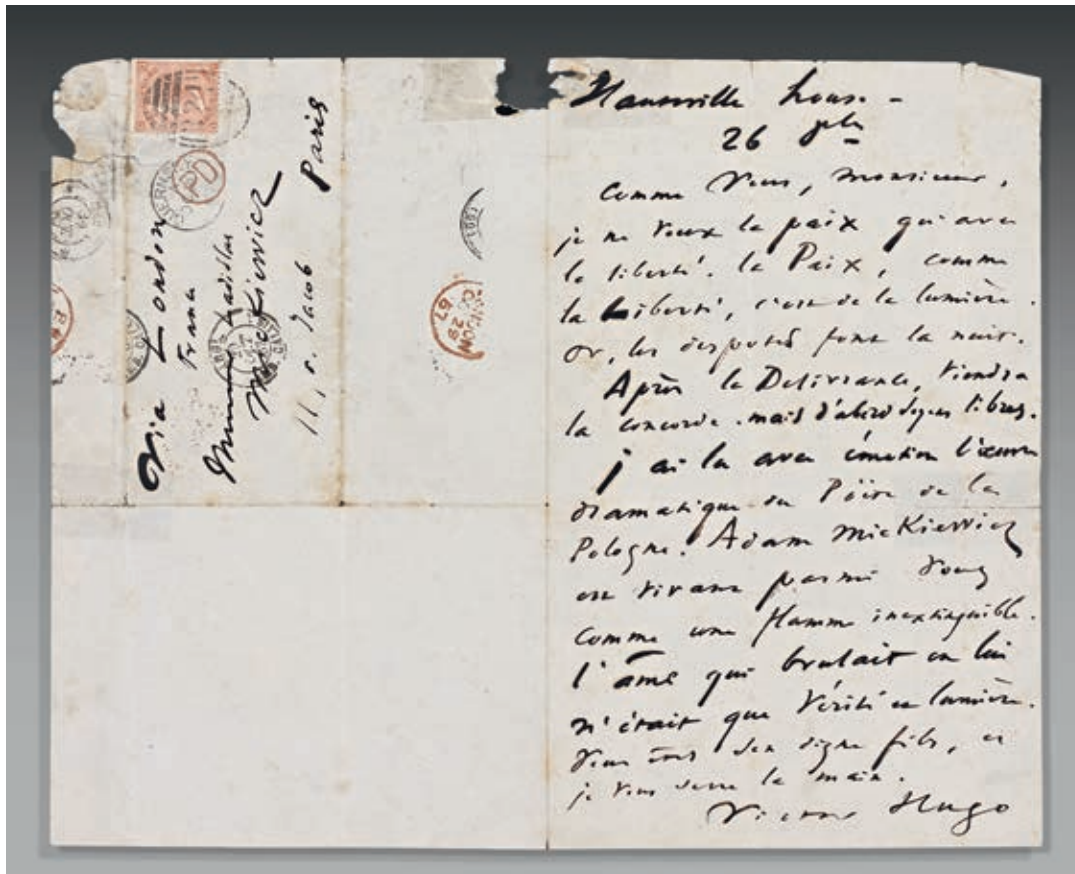 Via London
France
Monsieur Ladislas
Mickiewicz
11, r. Jacob Paris
PD
LONDON
29
67
Hauteville house -
26 8bre
Comme vous, monsieur,
je ne veux la paix qu'avec
la liberté. la Paix, comme
la Liberté, c'est de la lumière.
or, les despotes font la nuit.
Après la Délivrance, viendra
la concorde. mais d'abord soyons libres.
j'ai lu avec émotion l'œuvre
dramatique du Poëte de la
Pologne. Adam Mickiewicz
est vivant parmi vous
comme une flamme inextinguible.
l'âme qui brulait en lui
n'était que vérité et lumière.
Vous êtes son digne fils, et
je vous serre la main.
Victor Hugo